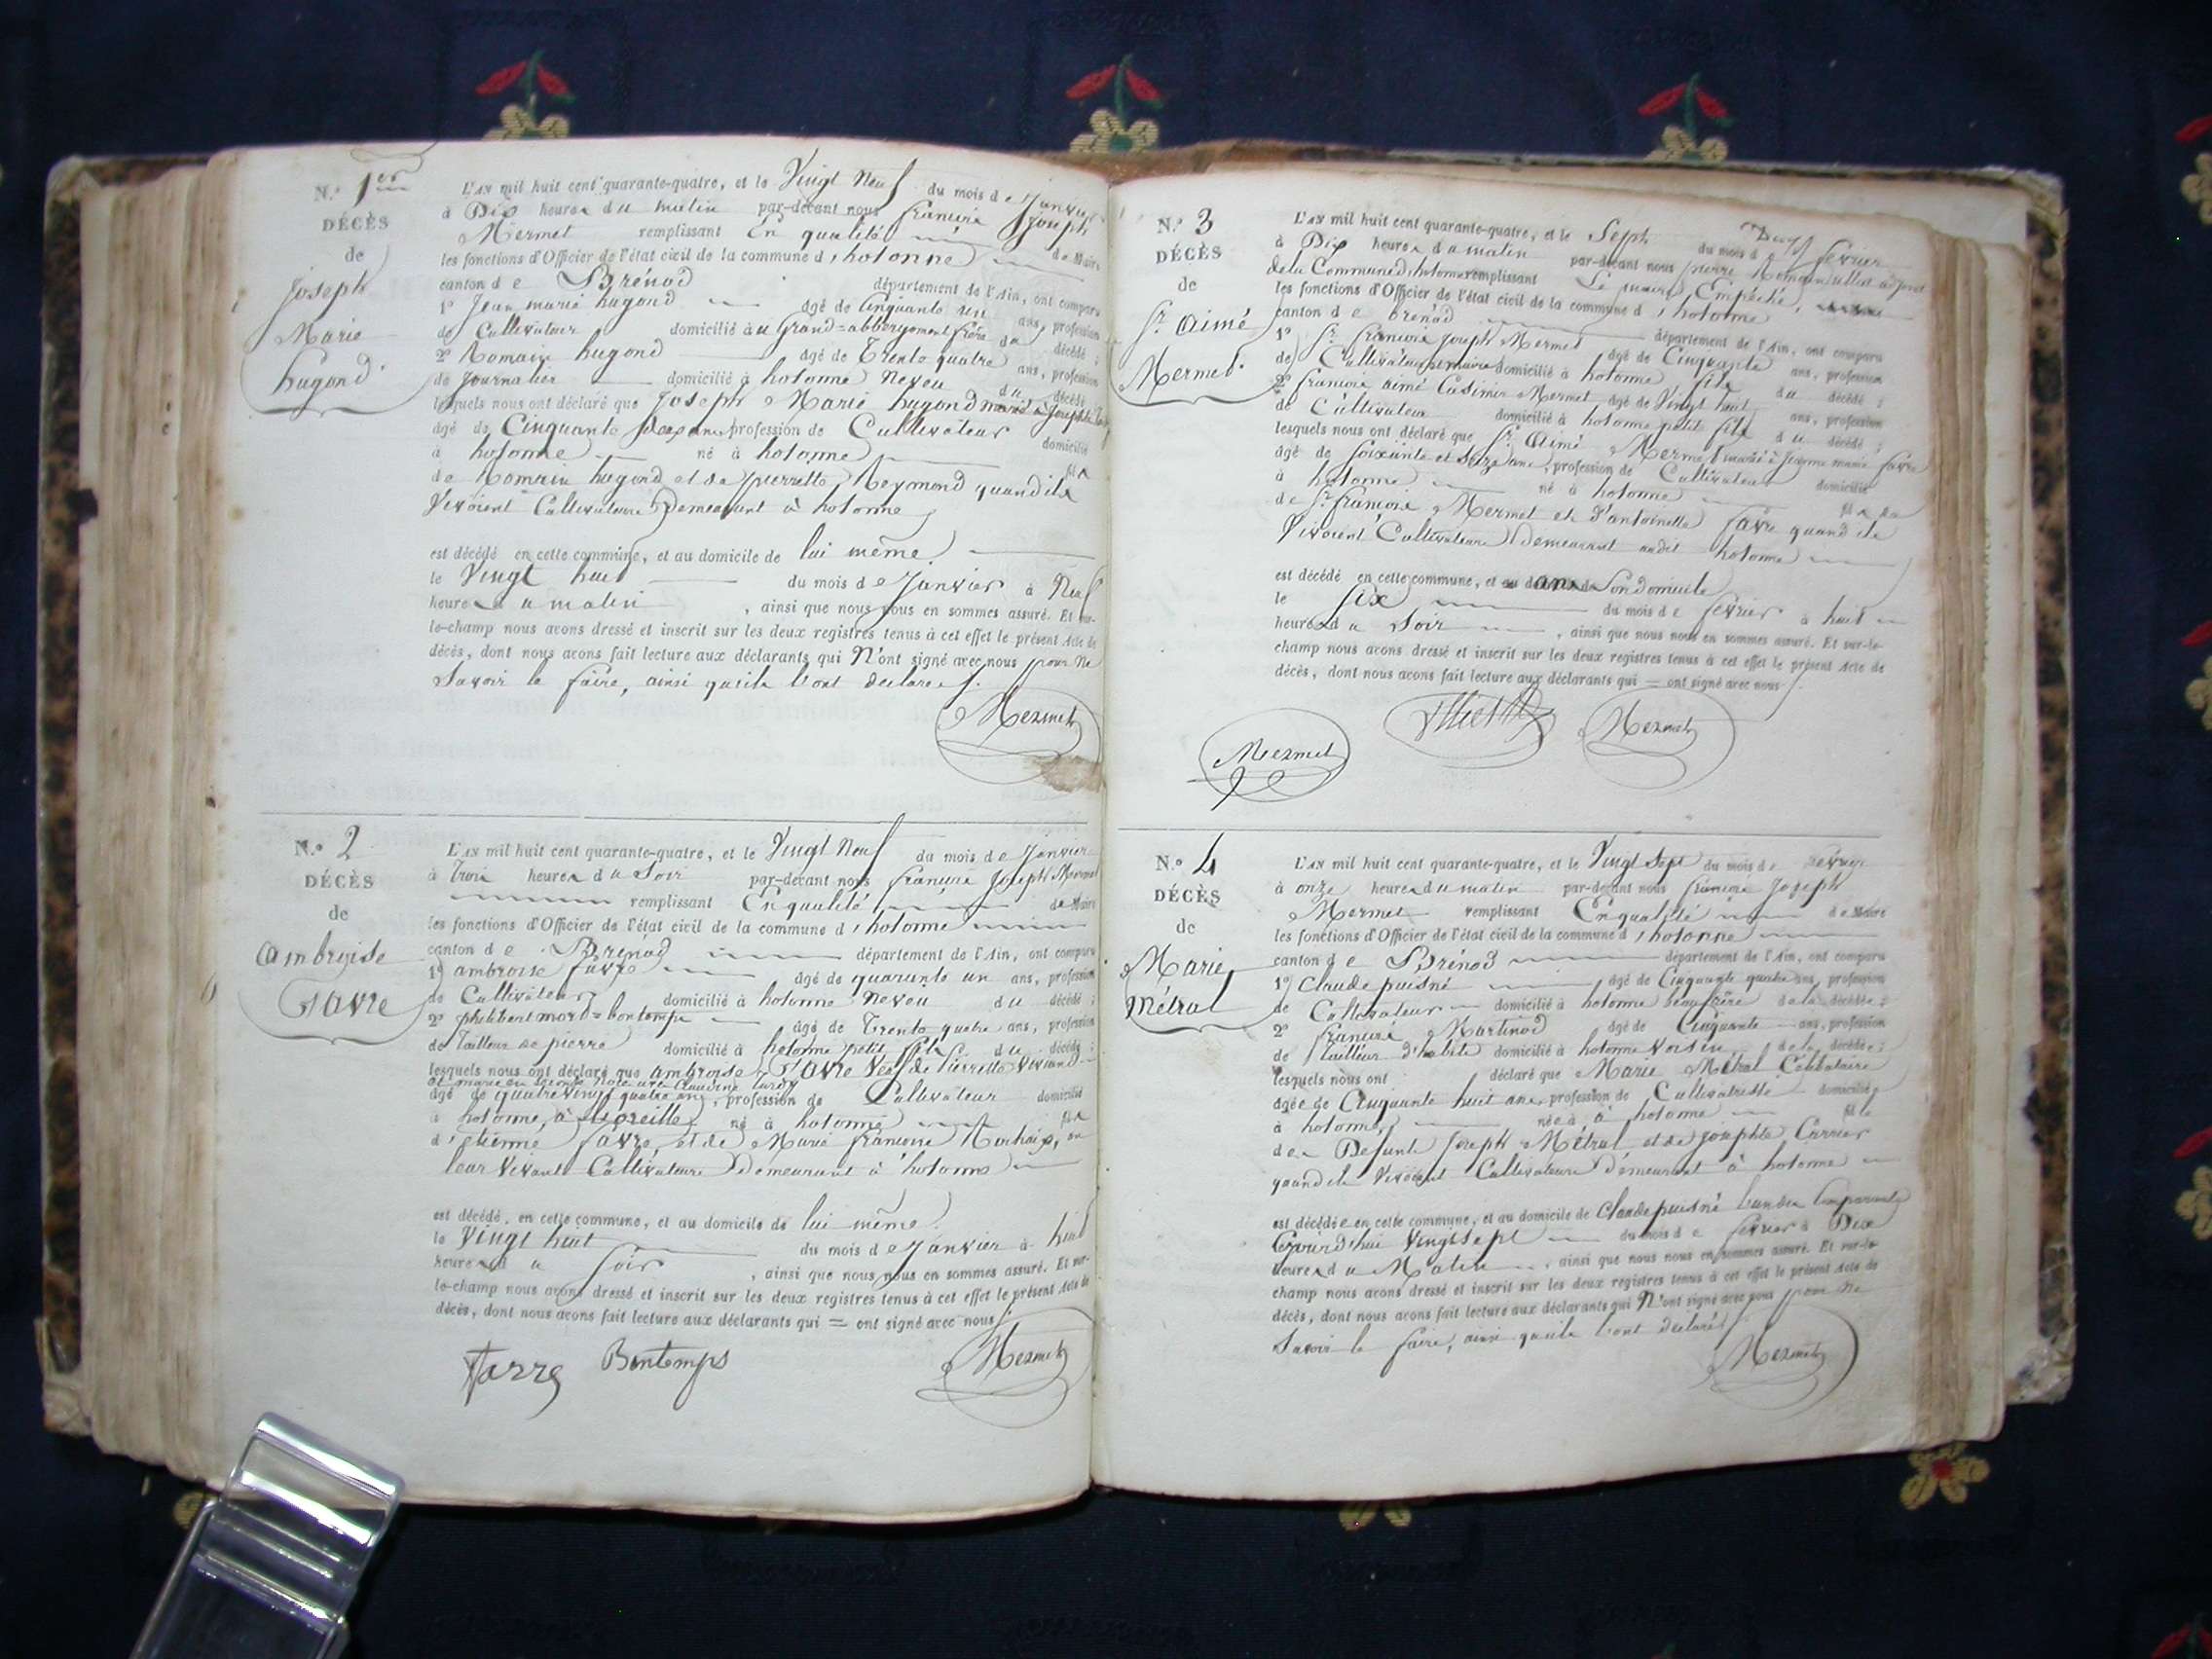 N.º 1er
DÉCÈS
de
Joseph
Marie
hugond.
L'AN mil huit cent quarante-quatre, et le Vingt Neuf du mois de Janvier
à Dix heures du matin par-devant nous françois Joseph
Mermet remplissant En qualité de Maire
les fonctions d'Officier de l'état civil de la commune d'hotonne
canton de Brénod département de l'Ain, ont comparu
1º Jean marie hugond âgé de Cinquante un ans, profession
de Cultivateur domicilié au Grand=abbergement frère du décédé;
2º Romain hugond âgé de Trente quatre ans, profession
de Journalier domicilié à hotonne Neveu du décédé
lesquels nous ont déclaré que Joseph Marie hugond marié à Josephte
âgé de Cinquante ans, profession de Cultivateur domicilié
à hotonne né à hotonne fils
de Romain hugond et de pierrette Reymond quand ils
Vivoient Cultivateurs Demeurant à hotonne
est décédé en cette commune, et au domicile de lui même
le Vingt huit du mois de Janvier à Neuf
heures du matin, ainsi que nous nous en sommes assuré. Et sur-
le-champ nous avons dressé et inscrit sur les deux registres tenus à cet effet le présent Acte de
décès, dont nous avons fait lecture aux déclarants qui N'ont signé avec nous pour ne
Savoir le faire, ainsi qu'ils l'ont déclaré.
Mermet
N.º 2
DÉCÈS
de
ambroise
Favre
L'AN mil huit cent quarante-quatre, et le Vingt Neuf du mois de Janvier
à trois heures du Soir par-devant nous françois Joseph Mermet
remplissant En qualité de Maire
les fonctions d'Officier de l'état civil de la commune d'hotonne
canton de Brénod département de l'Ain, ont comparu
1º ambroise favre âgé de quarante un ans, profession
de Cultivateur domicilié à hotonne Neveu du décédé;
2º philibert bontemps âgé de Trente quatre ans, profession
de Tailleur de pierre domicilié à hotonne petit fils du décédé;
lesquels nous ont déclaré que ambroise Favre Veuf de Pierrette
et marié en seconde Noce avec Claudine
âgé de quatre Vingt quatre ans, profession de Cultivateur domicilié
à hotonne, né à hotonne fils
d'étienne favre, et de Marie françoise
leur Vivant Cultivateurs Demeurant à hotonne
est décédé, en cette commune, et au domicile de lui même
le Vingt huit du mois de Janvier à huit
heures du Soir, ainsi que nous nous en sommes assuré. Et sur-
le-champ nous avons dressé et inscrit sur les deux registres tenus à cet effet le présent Acte de
décès, dont nous avons fait lecture aux déclarants qui = ont signé avec nous
Favre Bontemps Mermet
N.º 3
DÉCÈS
de
Sr. Aimé
Mermet.
L'AN mil huit cent quarante-quatre, et le Sept du mois de février
à Dix heures du matin par-devant nous pierre Romain adjoint
de la Commune d'hotonne remplissant Le maire Empêché,
les fonctions d'Officier de l'état civil de la commune d'hotonne
canton de brénod département de l'Ain, ont comparu
1º Sr. françois Joseph Mermet âgé de Cinquante ans, profession
de Cultivateur domicilié à hotonne fils du décédé;
2º françois aimé Casimir Mermet âgé de Vingt huit ans, profession
de Cultivateur domicilié à hotonne petit fils du décédé;
lesquels nous ont déclaré que Sr. Aimé Mermet marié à Jeanne marie favre
âgé de Soixante et ans, profession de Cultivateur domicilié
à hotonne né à hotonne fils de
de Sr. françois Mermet et d'antoinette favre quand ils
Vivoient Cultivateurs Demeurant audit hotonne
est décédé en cette commune, et Son domicile
le Six du mois de février à huit
heures du Soir, ainsi que nous nous en sommes assuré. Et sur-le-
champ nous avons dressé et inscrit sur les deux registres tenus à cet effet le présent Acte de
décès, dont nous avons fait lecture aux déclarants qui = ont signé avec nous.
Mermet Mermet
N.º 4
DÉCÈS
de
Marie
Métral
L'AN mil huit cent quarante-quatre, et le Vingt Sept du mois de février
à onze heures du matin par-devant nous françois Joseph
Mermet remplissant En qualité de Maire
les fonctions d'Officier de l'état civil de la commune d'hotonne
canton de Brénod département de l'Ain, ont comparu
1º Claude puisné âgé de Cinquante quatre ans, profession
de Cultivateur domicilié à hotonne beaufrère de la décédée;
2º françois Martinod âgé de Cinquante ans, profession
de tailleur d'habits domicilié à hotonne Voisin de la décédée;
lesquels nous ont déclaré que Marie Métral Célibataire
âgée de Cinquante huit ans, profession de Cultivatrice domiciliée
à hotonne née à hotonne fille
des Defunts Joseph Métral et de Josephte Carrier
quand ils Vivoient Cultivateurs Demeurant à hotonne
est décédée en cette commune, et au domicile de Claude puisné l'un des Comparants
aujourd'hui Vingt Sept du mois de février à Dix
heures du Matin, ainsi que nous nous en sommes assuré. Et sur-le-
champ nous avons dressé et inscrit sur les deux registres tenus à cet effet le présent Acte de
décès, dont nous avons fait lecture aux déclarants qui N'ont signé avec nous pour ne
Savoir le faire, ainsi qu'ils l'ont déclaré
Mermet